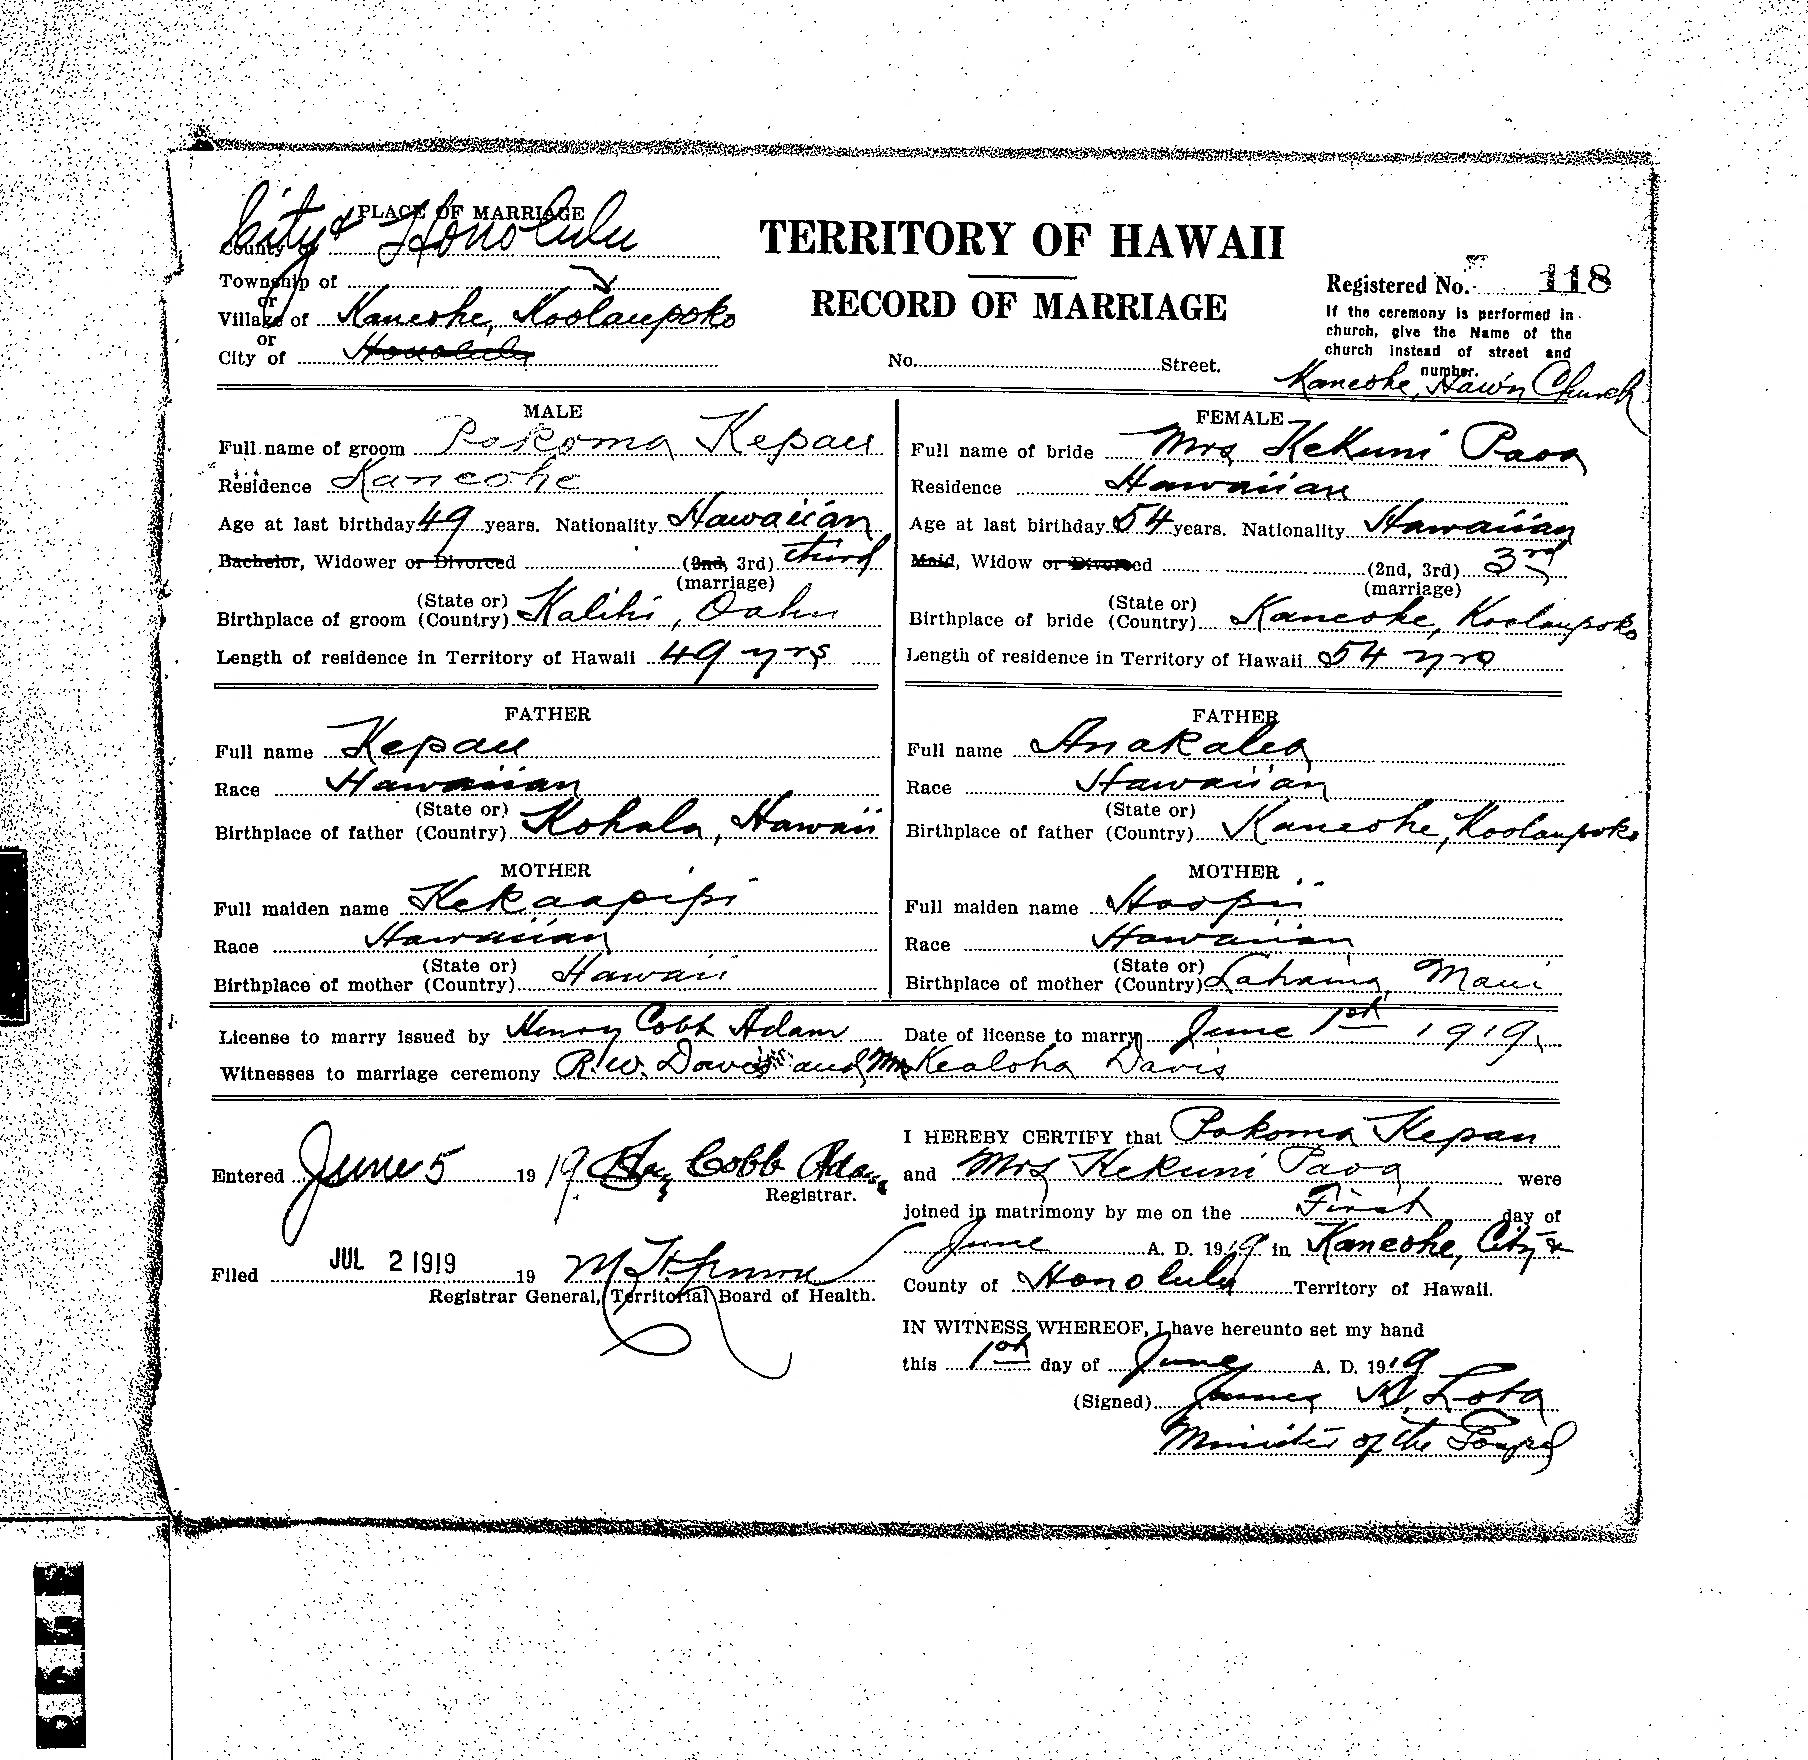 PLACE OF MARRIAGE
City & County of Honolulu
TERRITORY OF HAWAII
Township of
or
Village of Kaneohe, Koolaupoko
or
City of Honolulu
RECORD OF MARRIAGE
Registered No. 118
If the ceremony is performed in
church, give the Name of the
church instead of street and
number.
No. Street.
Kaneohe, Haw'n Church
MALE
Full name of groom Pokoma Kepau
Residence Kaneohe
Age at last birthday 49 years. Nationality Hawaiian
Bachelor, Widower or Divorced (2nd, 3rd) third
(marriage)
Birthplace of groom (State or) (Country) Kalihi, Oahu
Length of residence in Territory of Hawaii 49 yrs
FEMALE
Full name of bride Mrs Kekuni Paoa
Residence Hawaiian
Age at last birthday 54 years. Nationality Hawaiian
Maid, Widow or Divorced (2nd, 3rd) 3rd
(marriage)
Birthplace of bride (State or) (Country) Kaneohe, Koolaupoko
Length of residence in Territory of Hawaii 54 yrs
FATHER
Full name Kepau
Race Hawaiian
Birthplace of father (State or) (Country) Kohala, Hawaii
MOTHER
Full maiden name Kekaapipi
Race Hawaiian
Birthplace of mother (State or) (Country) Hawaii
FATHER
Full name Anakalea
Race Hawaiian
Birthplace of father (State or) (Country) Kaneohe, Koolaupoko
MOTHER
Full maiden name Hoopii
Race Hawaiian
Birthplace of mother (State or) (Country) Lahaina, Maui
License to marry issued by Henry Cobb Adam Date of license to marry June 1st 1919
Witnesses to marriage ceremony R. W. Davis and Mrs Kealoha Davis
Entered June 5 1919 Hy Cobb Adams
Registrar.
Filed JUL 2 1919 19
Registrar General, Territorial Board of Health.
I HEREBY CERTIFY that Pokoma Kepau
and Mrs Kekuni Paoa were
joined in matrimony by me on the First day of
June A. D. 1919 in Kaneohe, City &
County of Honolulu Territory of Hawaii.
IN WITNESS WHEREOF, I have hereunto set my hand
this 1st day of June A. D. 1919
(Signed) James K. Lota
Minister of the Gospel